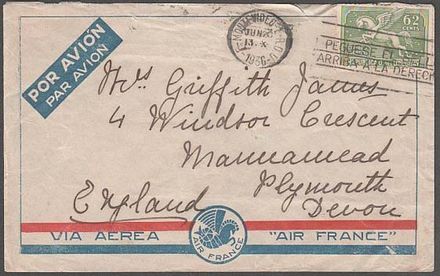 POR AVION
PAR AVION
MONTEVIDEO
JUN 23
13-X
1936
62
CENTS
PEGUESE EL
ARRIBA A LA DERECH
Mrs Griffith James
4 Windsor Crescent
Mannamead
Plymouth
England
Devon
VIA AEREA
AIR FRANCE
"AIR FRANCE"